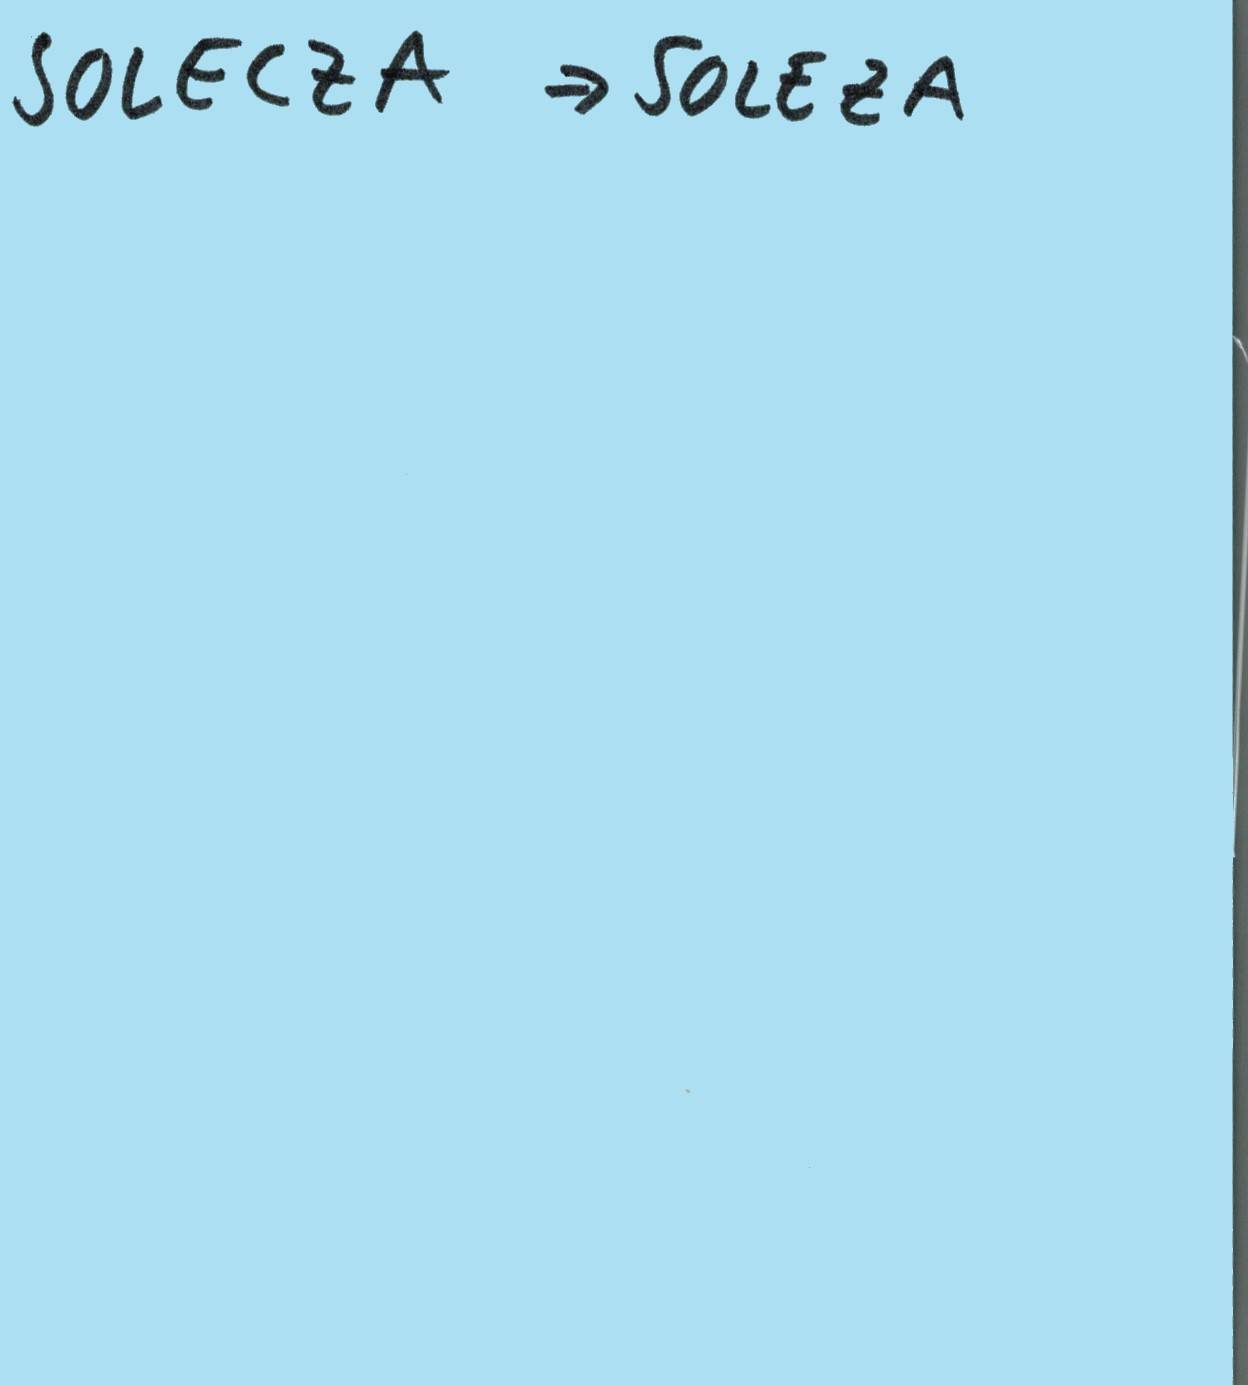 SOLECZA ⇒ SOLEZA